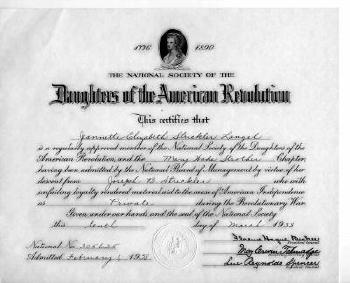 1776 1890
THE NATIONAL SOCIETY OF THE
Daughters of the American Revolution
This certifies that
Jannette Elizabeth Strickler
is a regularly approved member of the National Society of the Daughters of the
American Revolution, and the Chapter,
having been admitted by the National Board of Management by virtue of her
descent from Joseph B Strickler who with
unfailing loyalty rendered material aid to the cause of American Independence
as Private during the Revolutionary War
Given under our hands and the seal of the National Society
this tenth day of March 19
President General
National No.
Admitted February 1, 19